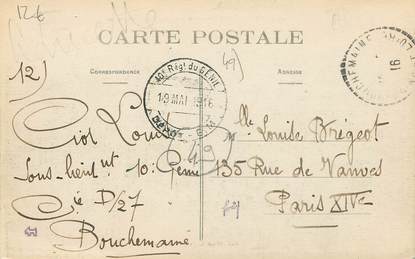 126
CARTE POSTALE
CORRESPONDANCE
ADRESSE
12)
49)
10e Régt du GENIE
19 MAI 1916
BOUCHEMAINE
16
Mlle Louise Brégeot
135 Rue de Vanves
Paris XIVe
Sous-lieut nt 10e Génie
Cie D/27
Bouchemaine